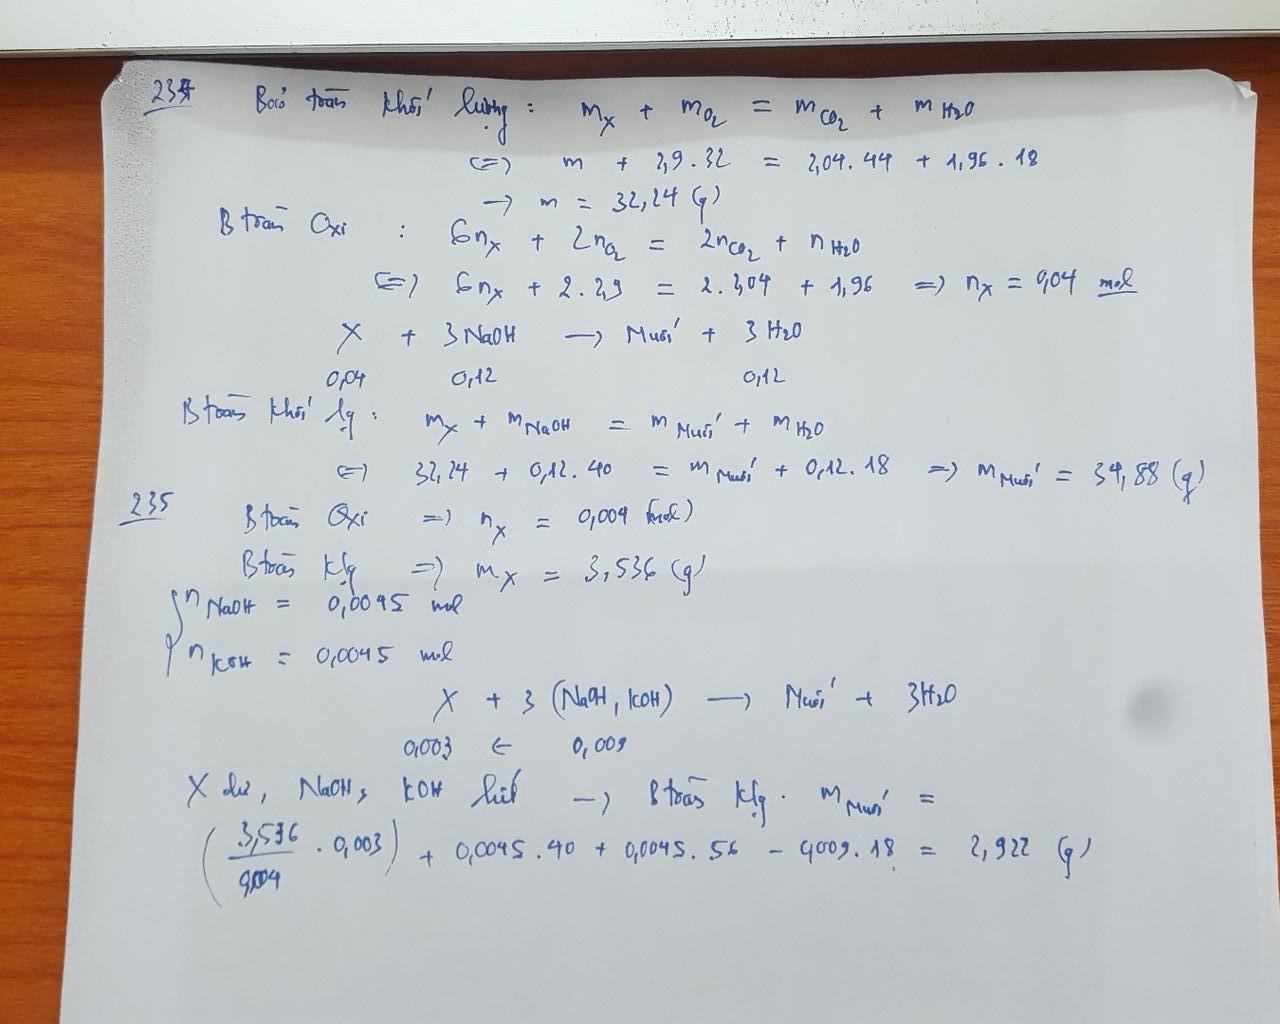 234 Bảo toàn khối lượng : mX + mO2 = mCO2 + mH2O
<=> m + 2,9 . 32 = 2,04 . 44 + 1,96 . 18
→ m = 32,24 (g)
B toàn Oxi : 6nX + 2nO2 = 2nCO2 + nH2O
<=> 6nX + 2 . 2,9 = 2 . 2,04 + 1,96 => nX = 0,04 mol
X + 3 NaOH → Muối + 3 H2O
0,04 0,12 0,12
B toàn khối lg : mX + mNaOH = mMuối + mH2O
<=> 32,24 + 0,12 . 40 = mMuối + 0,12 . 18 => mMuối = 34,88 (g)
235 B toàn Oxi => nX = 0,004 (mol)
B toàn klg => mX = 3,536 (g)
{ nNaOH = 0,0045 mol
nKOH = 0,0045 mol
X + 3 (NaOH, KOH) → Muối + 3H2O
0,003 ← 0,009
X dư, NaOH, KOH hết → B toàn klg . mMuối =
(3,536/0,004 . 0,003) + 0,0045 . 40 + 0,0045 . 56 - 0,009 . 18 = 2,922 (g)